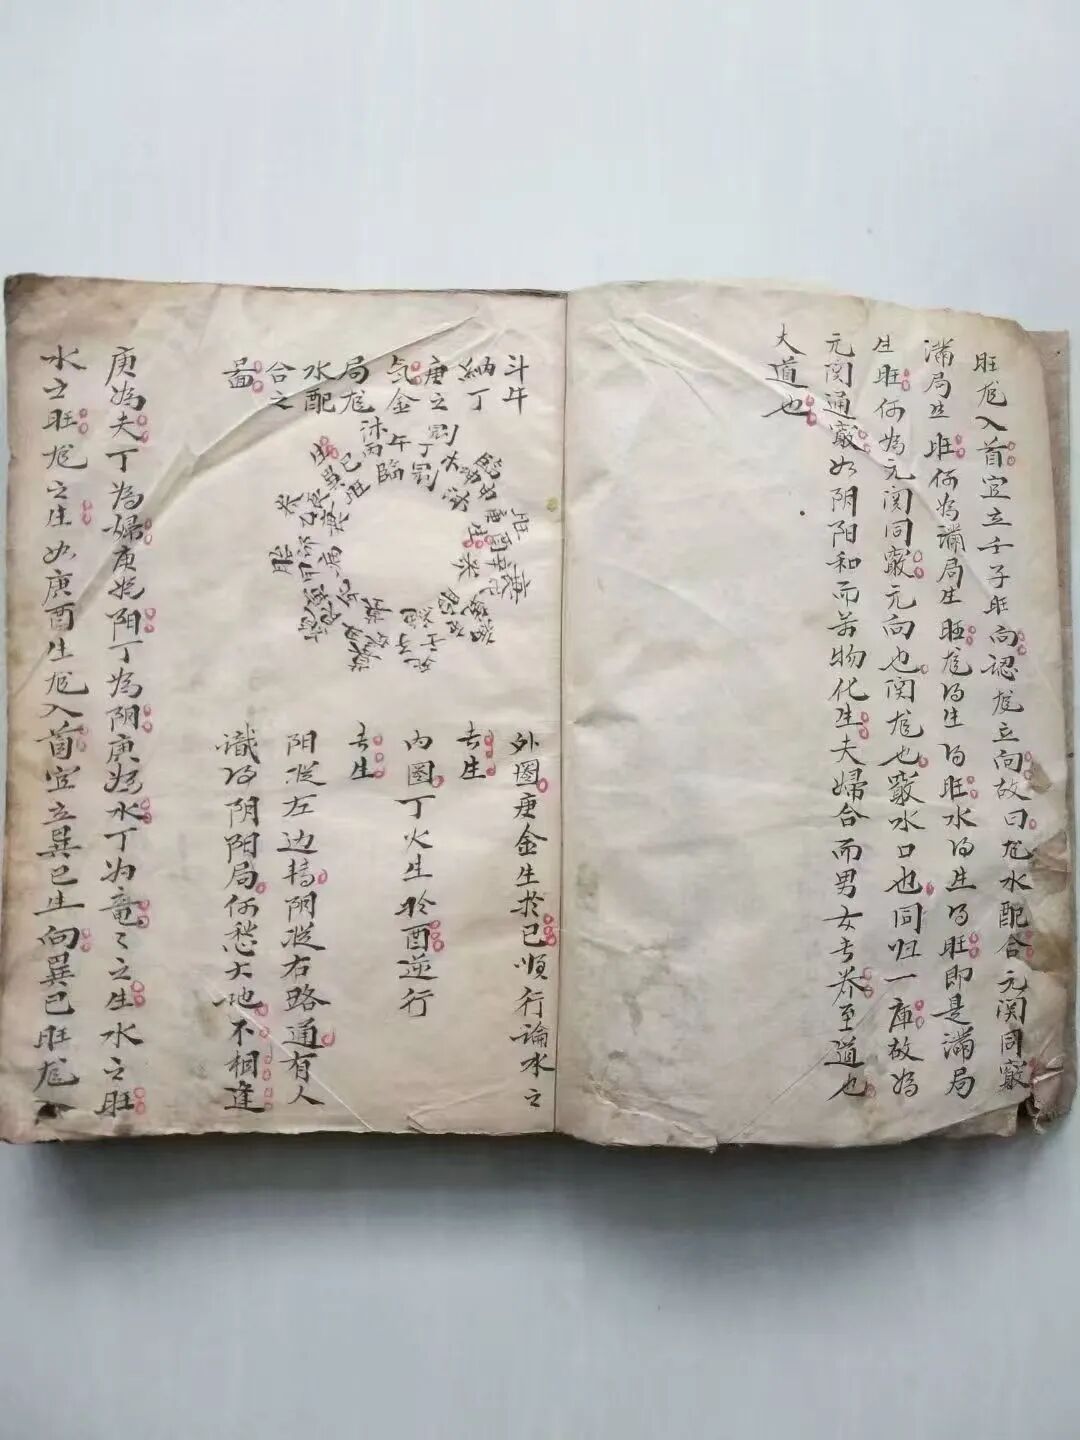 旺龙入首宜立壬子旺向認龙立向故曰龙水配合元関同竅
滿局生旺何為滿局生旺龙得生得旺水得生得旺即是滿局
生旺何為元関同竅元向也関龙也竅水口也同归一庫故為
元関通竅如阴阳和而万物化生夫婦合而男女长养至道也
大道也
斗牛
納丁
庚之
气金
局龙
水配
合之
啚
外圈庚金生於巳順行論水之
长生
内圈丁火生於酉逆行
长生
阳從左边轉阴從右路通有人
識得阴阳局何愁大地不相逢
庚為夫丁為婦庚為阳丁為阴庚為水丁为竜〻之生水之旺
水之旺龙之生如庚酉生龙入首宜立巽巳生向巽巳旺龙入